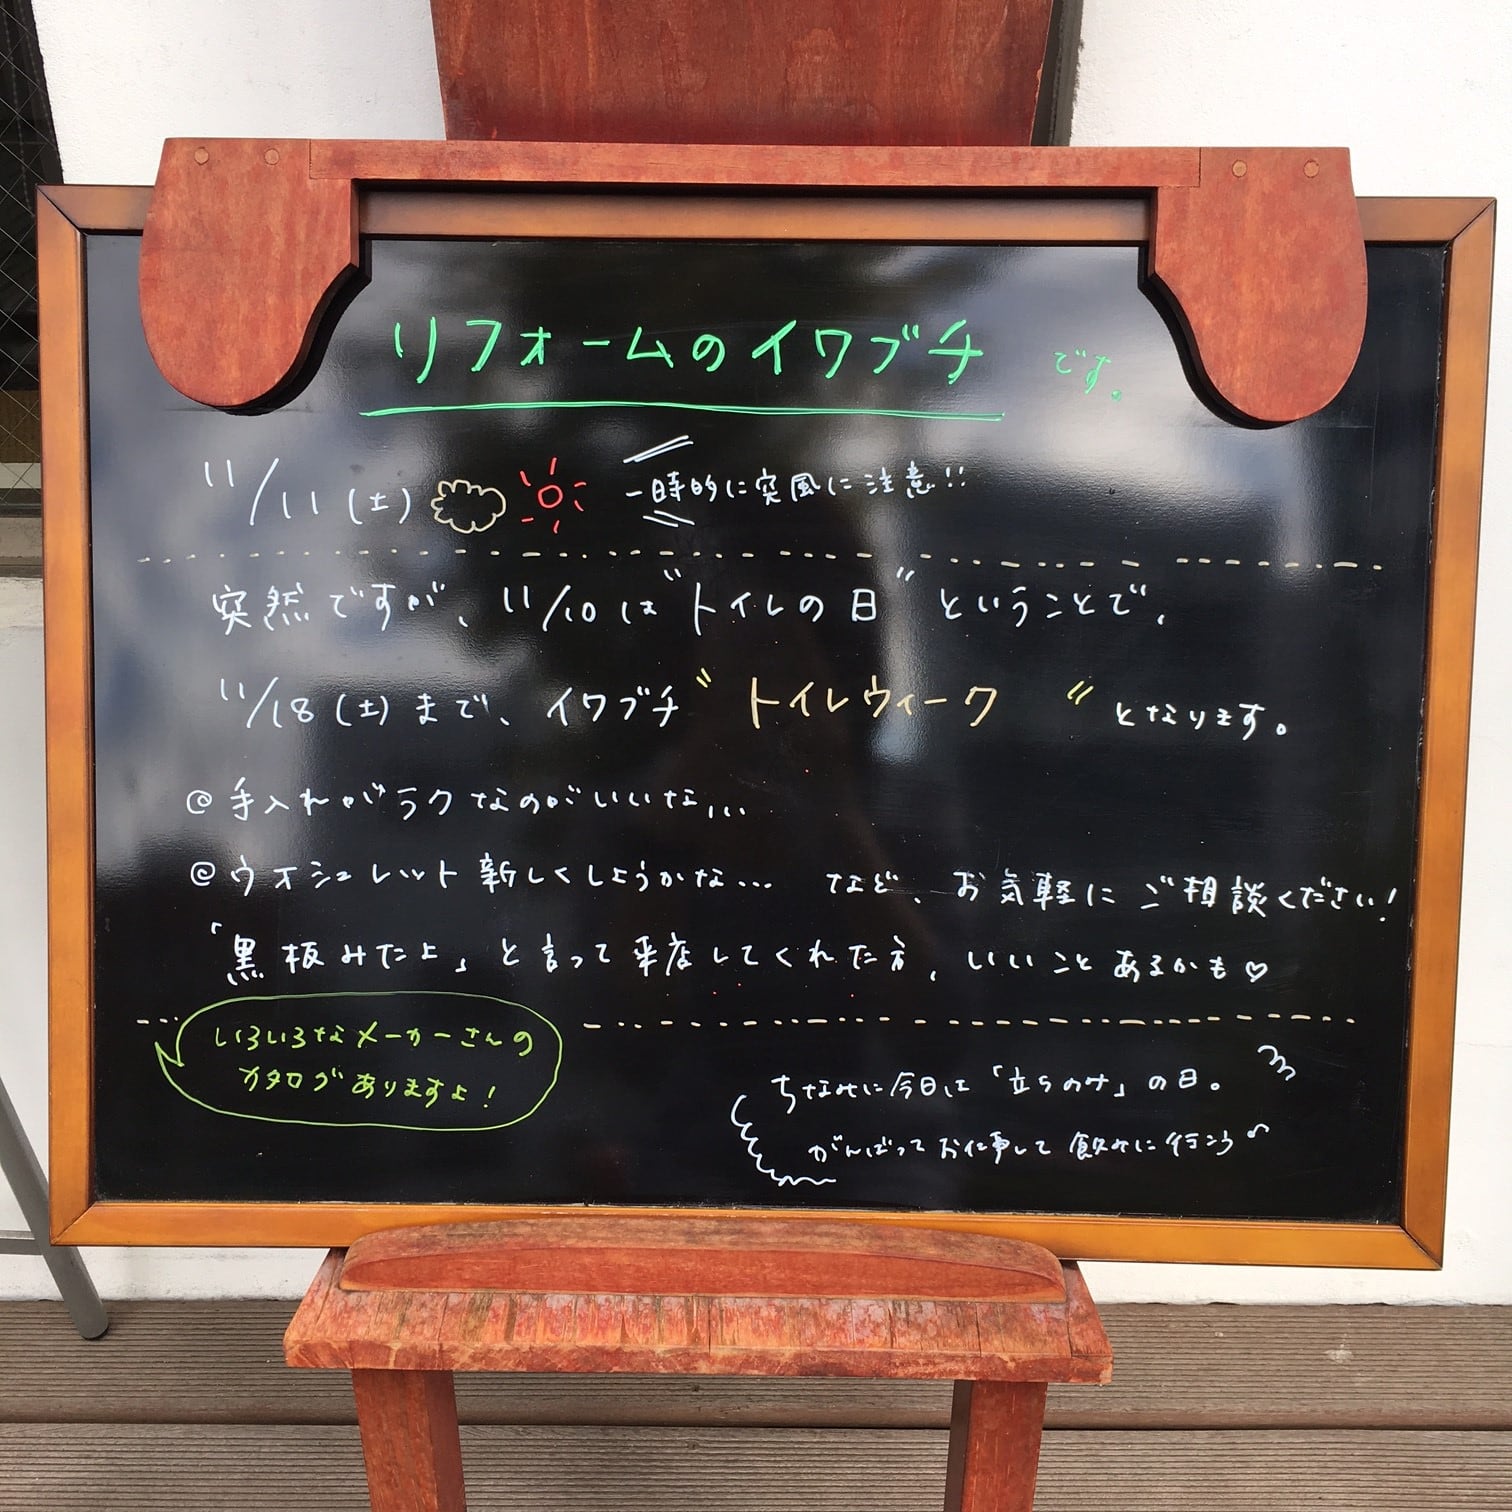 リフォームのイワブチ です。
11/11(土) 一時的に突風に注意!!
突然ですが、11/10は"トイレの日"ということで、
11/18(土)まで、イワブチ"トイレウィーク"となります。
@手入れがラクなのがいいな...
@ウォシュレット新しくしようかな... など、お気軽にご相談ください!
「黒板みたよ」と言って来店してくれた方、いいことあるかも♡
いろいろなメーカーさんの
カタログありますよ!
ちなみに今日は「立ちのみ」の日。
がんばってお仕事して飲みに行こう〜